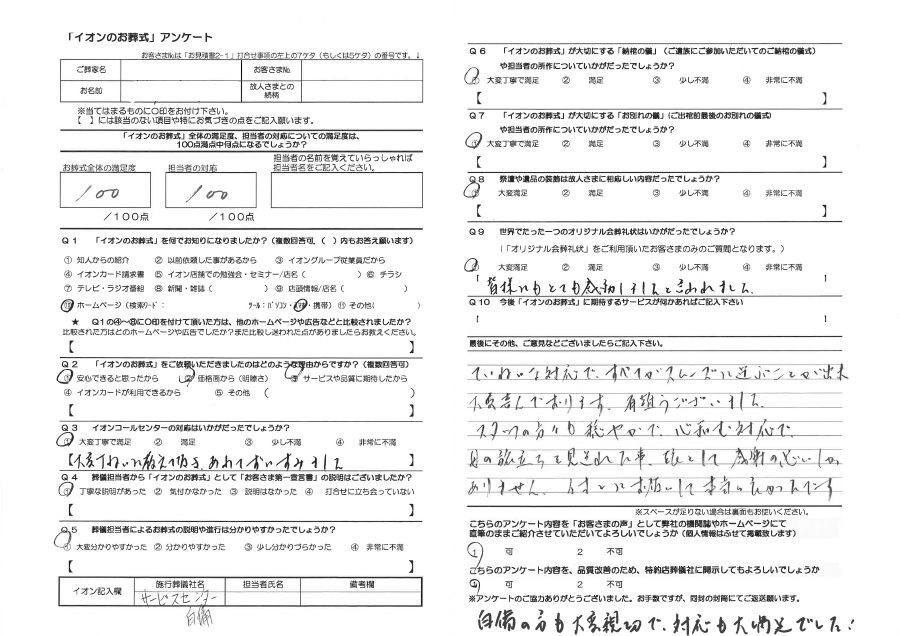 「イオンのお葬式」アンケート
お客さまNo.は「お見積書2-1」打合せ事項の左上の7ケタ(もしくは5ケタ)の番号です。↓
ご葬家名 お客さまNo.
お名前 故人さまとの続柄
※当てはまるものに○印をお付け下さい。
【 】には該当のない項目や特にお気づきの点をご記入願います。
「イオンのお葬式」全体の満足度、担当者の対応についての満足度は、
100点満点中何点になるでしょうか?
お葬式全体の満足度 担当者の対応 担当者の名前を覚えていらっしゃれば
担当者名をご記入ください。
100 100
/100点 /100点
Q1 「イオンのお葬式」を何でお知りになりましたか?(複数回答可、( )内もお答え願います)
① 知人からの紹介 ② 以前依頼した事があるから ③ イオングループ従業員だから
④ イオンカード請求書 ⑤ イオン店舗での勉強会・セミナー/店名( ) ⑥ チラシ
⑦ テレビ・ラジオ番組 ⑧ 新聞・雑誌( ) ⑨ 店頭情報/店名( )
⑩ ホームページ(検索ワード: ツール:パソコン・スマホ・携帯) ⑪ その他( )
★ Q1の④~⑧に○印を付けて頂いた方は、他のホームページや広告などと比較されましたか?
比較された方はどのホームページや広告でしたか?また比較し迷われた点がありましたらお教えください。
【 】
Q2 「イオンのお葬式」をご依頼いただきましたのはどのような理由からですか?(複数回答可)
① 安心できると思ったから ② 価格面から(明瞭さ) ③ サービスや品質に期待したから
④ イオンカードが利用できるから ⑤ その他 ( )
【 】
Q3 イオンコールセンターの対応はいかがだったでしょうか?
① 大変丁寧で満足 ② 満足 ③ 少し不満 ④ 非常に不満
【大変ていねいに教えて頂き、
Q4 葬儀担当者から「イオンのお葬式」として「お客さま第一宣言書」の説明はございましたか?
① 丁寧な説明があった ② 気付かなかった ③ 説明はなかった ④ 打合せに立ち会っていない
【 】
Q5 葬儀担当者によるお葬式の説明や進行は分かりやすかったでしょうか?
① 大変分かりやすかった ② 分かりやすかった ③ 少し分かりづらかった ④ 非常に不満
【 】
イオン記入欄 施行葬儀社名 担当者氏名 備考欄
サービスセンター
白備
Q6 「イオンのお葬式」が大切にする「納棺の儀」(ご遺族にご参加いただいてのご納棺の儀式)
や担当者の所作についていかがだったでしょうか?
① 大変丁寧で満足 ② 満足 ③ 少し不満 ④ 非常に不満
【 】
Q7 「イオンのお葬式」が大切にする「お別れの儀」(ご出棺前最後のお別れの儀式)
や担当者の所作についていかがだったでしょうか?
① 大変丁寧で満足 ② 満足 ③ 少し不満 ④ 非常に不満
【 】
Q8 祭壇や遺品の装飾は故人さまに相応しい内容だったでしょうか?
① 大変満足 ② 満足 ③ 少し不満 ④ 非常に不満
【 】
Q9 世界でたった一つのオリジナル会葬礼状はいかがだったでしょうか?
(「オリジナル会葬礼状」をご利用頂いたお客さまのみのご質問となります。)
① 大変満足 ② 満足 ③ 少し不満 ④ 非常に不満
皆様にもとても感動しましたと言われました。
Q10 今後「イオンのお葬式」に期待するサービスが何かあればご記入下さい
【 】
最後にその他、ご意見などございましたらご記入下さい。
ていねいな対応で、すべてがスムーズに運ぶことが出来
大変喜んでおります。有難うございました。
スタッフの方々も穏やかで、心和む対応で、
母の旅立ちを見送れた事、娘として感謝の思いしか
ありません。イオンにお願いして本当に良かったです
※スペースが足りない場合は裏面もお使いください。
こちらのアンケート内容を「お客さまの声」として弊社の機関誌やホームページにて
直筆のままご紹介させていただいてよろしいでしょうか(個人情報はふせて掲載致します)
1 可 2 不可
こちらのアンケート内容を、品質改善のため、特約店葬儀社に開示してもよろしいでしょうか
1 可 2 不可
※アンケートのご協力ありがとうございました。お手数ですが、同封の封筒にてご返送願います。
白備の方も大変親切で、対応も大満足でした!